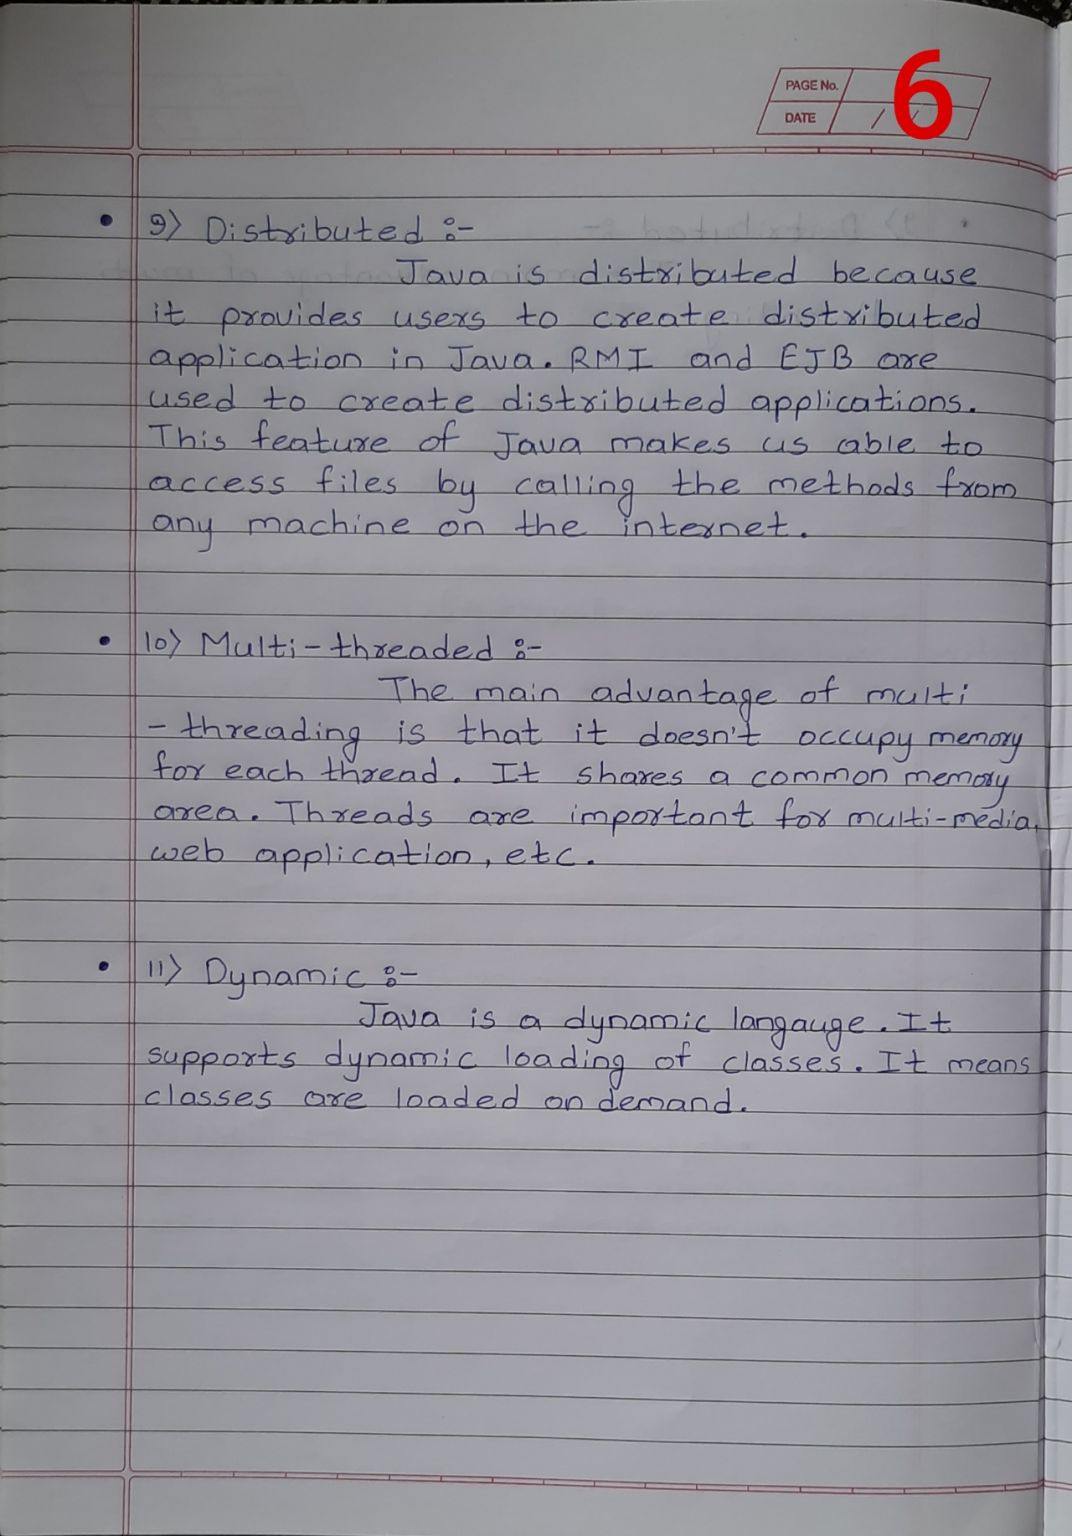 PAGE No.
DATE / /
6
• 9) Distributed :-
Java is distributed because
it provides users to create distributed
application in Java. RMI and EJB are
used to create distributed applications.
This feature of Java makes us able to
access files by calling the methods from
any machine on the internet.
• 10) Multi-threaded :-
The main advantage of multi
- threading is that it doesn't occupy memory
for each thread. It shares a common memory
area. Threads are important for multi-media,
web application, etc.
• 11) Dynamic :-
Java is a dynamic langauge. It
supports dynamic loading of classes. It means
classes are loaded on demand.